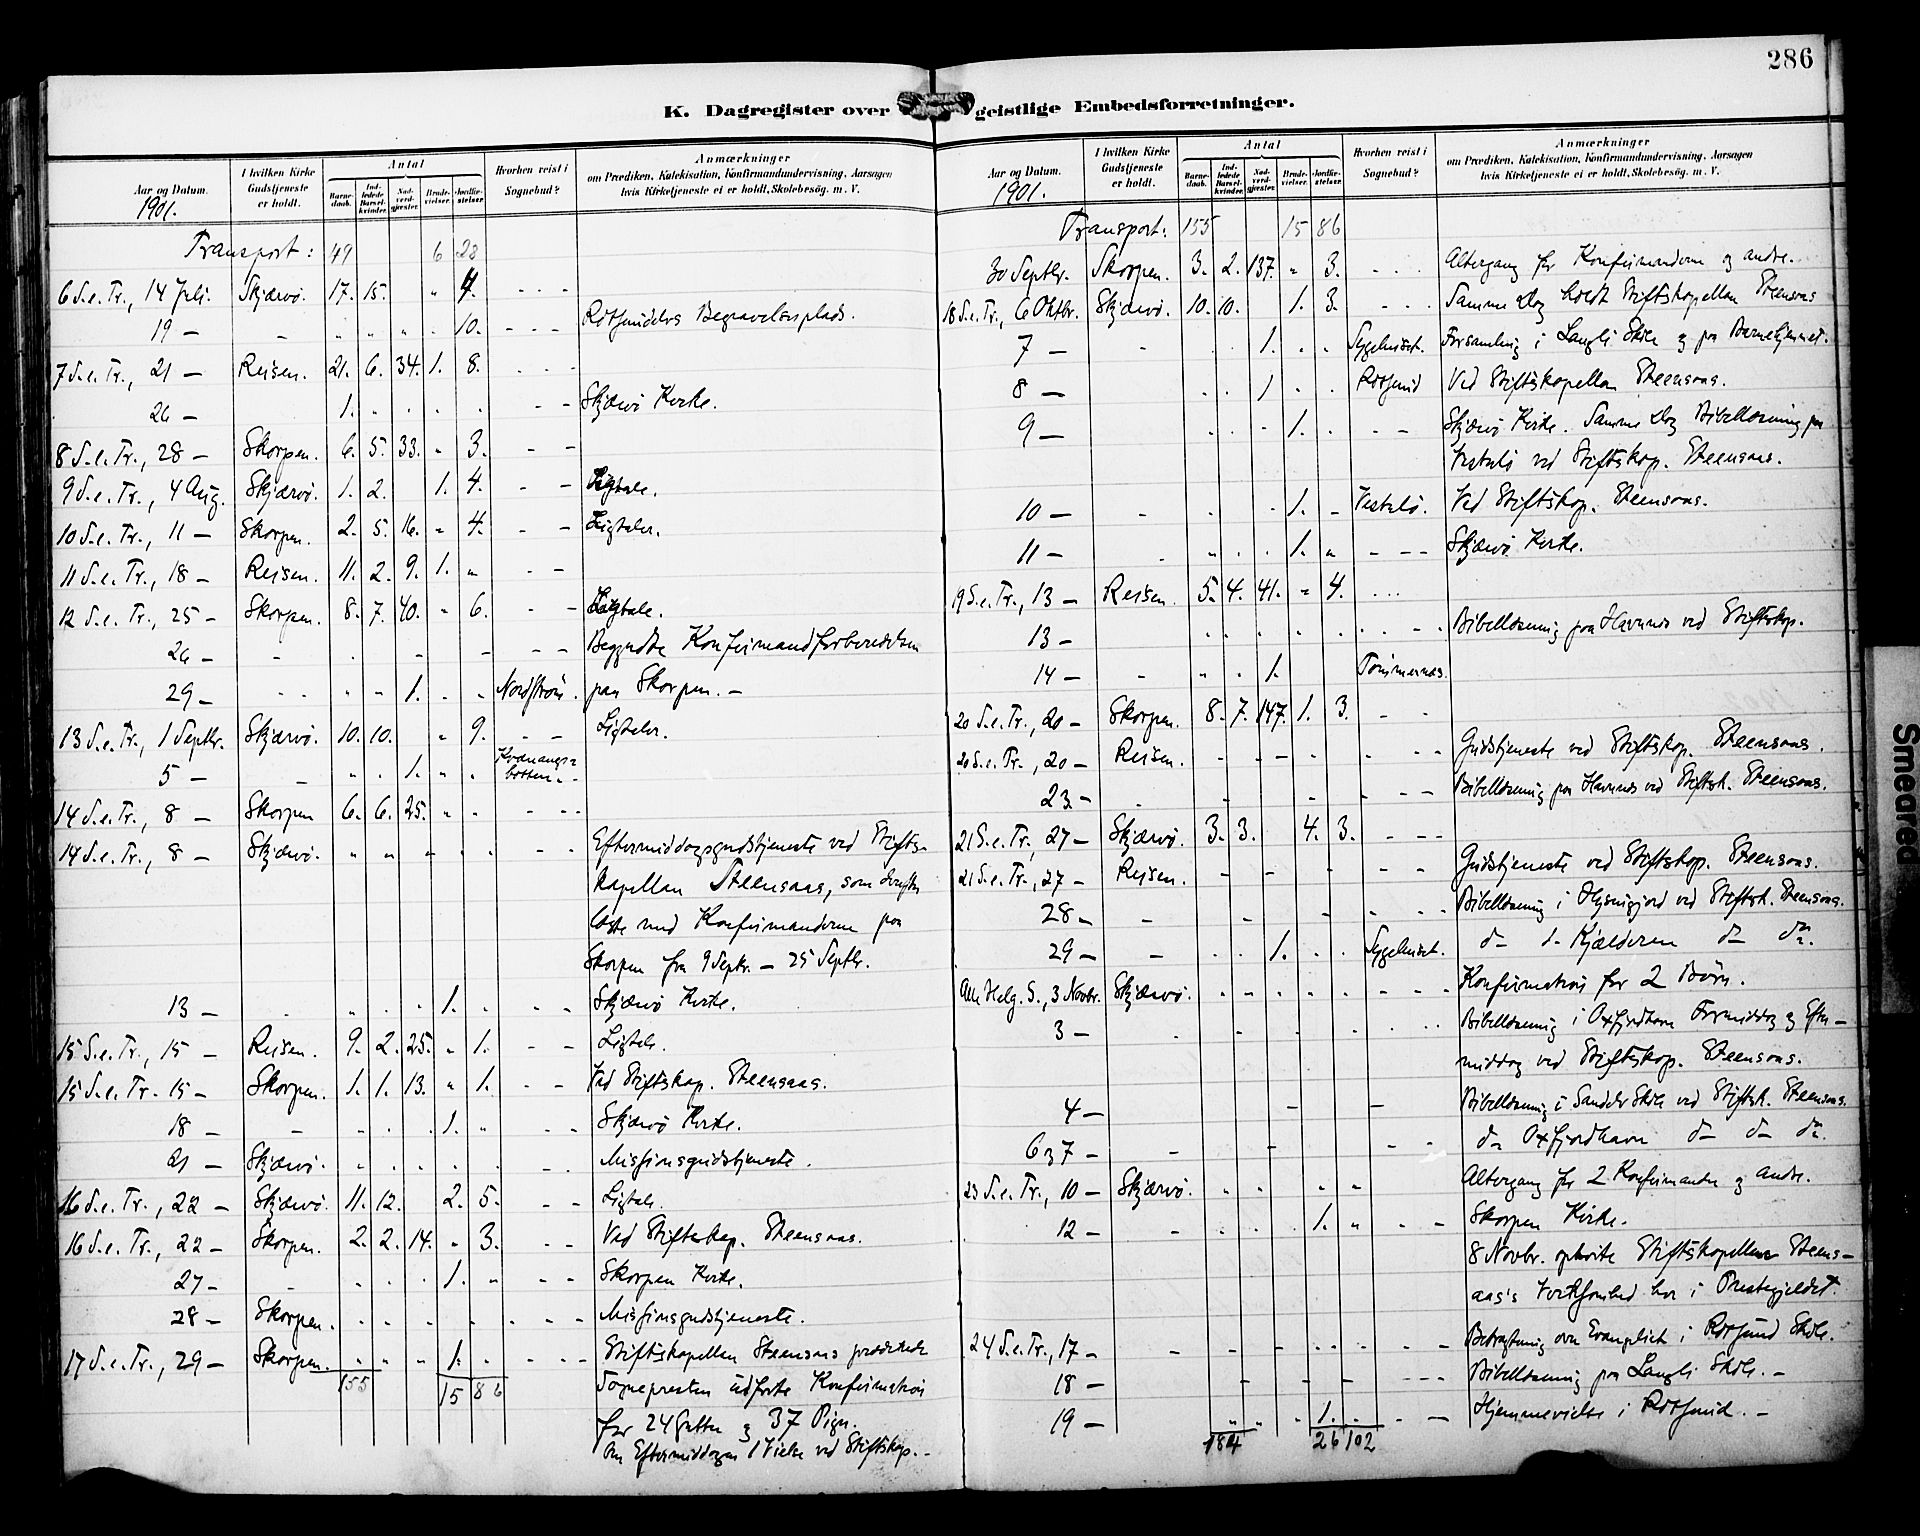 286
K. Dagregister over geistlige Embedsforretninger.
Aar og Datum. I hvilken Kirke Gudstjeneste er holdt. Antal Barnedaab. Indledede Barselkvinder. Nadverdgjæster. Brudevielser. Jordfæstelser. Hvorhen reist i Sognebud? Anmærkninger om Prædiken, Katekisation, Konfirmandundervisning, Aarsagen hvis Kirketjeneste ei er holdt, Skolebesøg. m. V.
1901.
Transport: 49 6 28
6 S.e.Tr., 14 Juli. Skjærvö. 17. 15. " 4. - - -
19 — - " " " " 10. - - - Rotsundets Begravelsesplads.
7 S.e.Tr., 21 — Reisen. 21. 6. 34. 1. 8. - - -
26 — 1. " " " " - - Skjærvö Kirke.
8 S.e.Tr., 28 — Skorpen. 6. 5. 33. " 3. - -
9 S.e.Tr., 4 Aug. Skjærvö. 1. 2. 1. 4. - - Ligtale.
10 S.e.Tr., 11 — Skorpen. 2. 5. 16. " 4. - - Ligtaler.
11 S.e.Tr., 18 — Reisen. 11. 2. 9. 1. " - -
12 S.e.Tr., 25 — Skorpen. 8. 7. 40. " 6. - - Ligtale.
26 — - - - - - - - Begyndte Konfirmandforberedelsen
29 — - - " " 1. " " Nordström. paa Skorpen. —
13 S.e.Tr., 1 Septbr. Skjærvö. 10. 10. " 9. - - Ligtaler.
5 — - " " 1. " " Kvænangsbotten.
14 S.e.Tr., 8 — Skorpen 6. 6. 25. " " - - -
14 S.e.Tr., 8 — Skjærvö. " " " " " - - Eftermiddagsgudstjeneste ved Stifts-
kapellan Steensaas, som derefter
læste med Konfirmanderne paa
Skorpen fra 9 Septbr. — 25 Septbr.
13 — - " " " 1. " - - Skjærvö Kirke.
15 S.e.Tr., 15 — Reisen. 9. 2. 25. " 1. - - Ligtale.
15 S.e.Tr. 15 — Skorpen. 1. 1. 13. " 1. - - Ved Stiftskap. Steensaas.
18 — - " " " 1. " - - Skjærvö Kirke.
21 — Skjærvö. " " " " " - - Missionsgudstjeneste.
16 S.e.Tr., 22 — Skjærvö. 11. 12. 2. 5. - - Ligtale.
16 S.e.Tr., 22 — Skorpen. 2. 2. 14. " 3. - - Ved Stiftskap. Steensaas.
27 — - " " " 1. " - - Skorpen Kirke.
28 — Skorpen. " " " " " - - Missionsgudstjeneste.
17 S.e.Tr., 29 — Skorpen. " " " 1. " - - - Stiftskapellan Steensaas prædikede
155 15 86 Sognepresten udførte Konfirmation
for 24 Gutter og 37 Piger.
Om Eftermiddagen 1 Vielse ved Stiftskap. —
Aar og Datum. I hvilken Kirke Gudstjeneste er holdt. Antal Barnedaab. Indledede Barselkvinder. Nadverdgjæster. Brudevielser. Jordfæstelser. Hvorhen reist i Sognebud? Anmærkninger om Prædiken, Katekisation, Konfirmandundervisning, Aarsagen hvis Kirketjeneste ei er holdt, Skolebesøg. m. V.
1901.
Transport: 155 15 86
30 Septbr. Skorpen. 3. 2. 137. " 3. - - - Altergang for Konfirmanderne og andre.
18 S.e.Tr., 6 Oktbr. Skjærvö. 10. 10. 1. 3. - - - Samme Dag holdt Stiftskapellan Steensaas
7 — - " " 1. " " Sygehuset. Forsamling i Langli Skole og paa Barnehjemmet.
8 — " " 1 " " Rotsund Ved Stiftskapellan Steensaas.
9 — " " " 1. " - - Skjærvö Kirke. Samme Dag Bibellæsning paa
ved Stiftskap. Steensaas.
10 — - " " 1. " Ved Stiftskap. Steensaas.
11 — - " " " 1. " - - - Skjærvö Kirke.
19 S.e.Tr., 13 — Reisen. 5. 4. 41. " 4. - - -
13 — " " " " " - - - Bibellæsning paa Havnnes ved Stiftskap.
14 — - " " " 1. Tömmernæs.
20 S.e.Tr., 20 — Skorpen. 8. 7. 147. 1. 3. - -
20 S.e.Tr., 20 — Reisen. - - - - - - - Gudstjeneste ved Stiftskap. Steensaas.
23 — - - - - - - Bibellæsning paa Havnnes ved Stiftsk. Steensaas.
21 S.e.Tr., 27 — Skjærvö. 3. 3. 4. 3. - - -
21 S.e.Tr., 27 — Reisen. - - - - - Gudstjeneste ved Stiftskap. Steensaas.
28 — - - - - - - Bibellæsning i ved Stiftsk. Steensaas.
29 — - " " 1. " " Sygehuset. do i Kjælderen do do.
Alle Helg. S., 3 Novbr. Skjærvö. " " " " " - - - Konfirmation for 2 Börn.
3 — - - - - - - Bibellæsning i Oxfjordhavn Formiddag og Efter-
middag ved Stiftskap. Steensaas.
4 — - - Bibellæsning i Skole ved Stiftsk. Steensaas.
6 og 7 — - - - - do Oxfjordhavn do do do.
23 S.e.Tr., 10 — Skjærvö. " " " " Altergang for 2 Konfirmanter og andre.
12 — - " " " 1. " - - Skorpen Kirke.
8 Novbr. ophørte Stiftskapellan Steens-
aas's Virksomhed her i Prestegjeldet.
24 S.e.Tr., 17 — - - - - - - - Betragtning over Evangeliet i Rotsund Skole.
18 — - - - - - - Bibellæsning paa Langli Skole. —
19 — " " " 1. " - - Hjemmevielse i Rotsund. —
184 26 102
Smeared